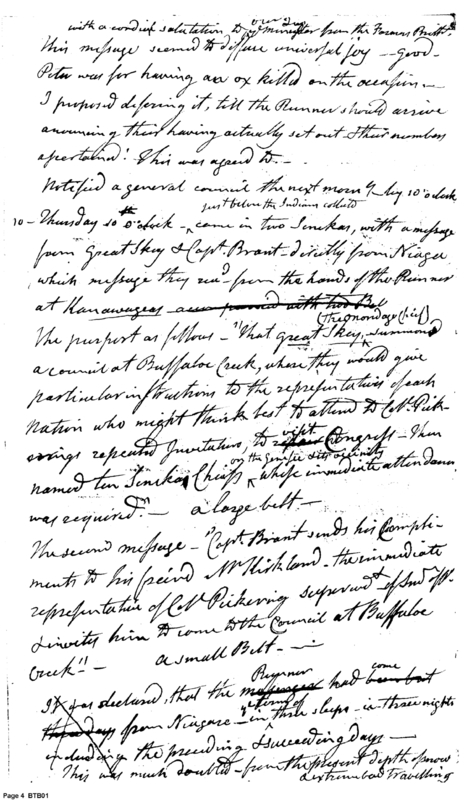 with a cordial salutation to our dear minister from the Famous Britt
This message seemed to diffuse universal joy — Good-
Peter was for having an ox killed on the occasion —
I proposed defering it, till the Runner should arrive
anouncing their having actually set out & their numbers
ascertained. This was agreed to. —
Notified a general council the next morn'g by 10 o'clock
just before the Indians collected
10 — Thursday 10th o'clock — came in two Senekas, with a message
from Great Sky & Capt. Brant — directly from Niaga
which message they rec'd from the hands of the Runner
at Kanawageas accompanied with two Bel
(The onondaga Chief)
The purport as follows — "That great Sky, summond
a council at Buffaloe Creek, where they would give
particular instructions to the representatives of each
Nation who might think best to attend to Col. Pick-
erings repeated Invitations, to visit Congress — Then
on the Genesee & its vicinity
named ten Seneka Chiefs whose immediate attendance
was required." — a large belt —
The second message — "Capt. Brant sends his Compli-
ments to his freind Mr. Kirkland — the immediate
representative of Col. Pickering superindt of Ind. aff.
& invites him to come to the Council at Buffaloe
Creek" — a small Belt —
Runner come
It was declared, that the messenger had been but
three days from Niagara — in the time of three sleeps — in three nights
including the preceding & succeeding days —
This was much doubted — from the present depth of snow
& extreme bad travelling
Page 4 BTB01